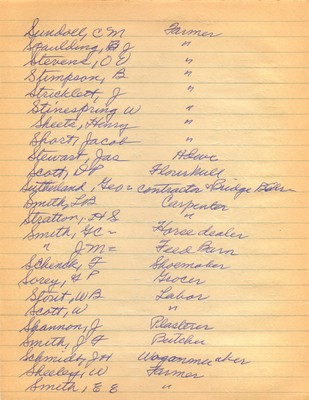 Sundoll, C M Farmer
Spaulding, B J "
Stevens, O E "
Stimpson, B "
Stricklett, J "
Stinespring W "
Sheets, Henry "
Short, Jacob "
Stewart, Jas
Scott, D P Flour Mill
Sutherland, Geo = contractor & Bridge
Smith, L B Carpenter
Stratton, H S "
Smith, G C = Horse dealer
" J M = Feed Barn
Schenck, F Shoemaker
Sorey, G P Grocer
Stout, W B Labor
Scott, W "
Shannon, J Plasterer
Smith, J F Butcher
Schmidt, J H Wagonmeaker
Sheeley, W Farmer
Smith, E E "